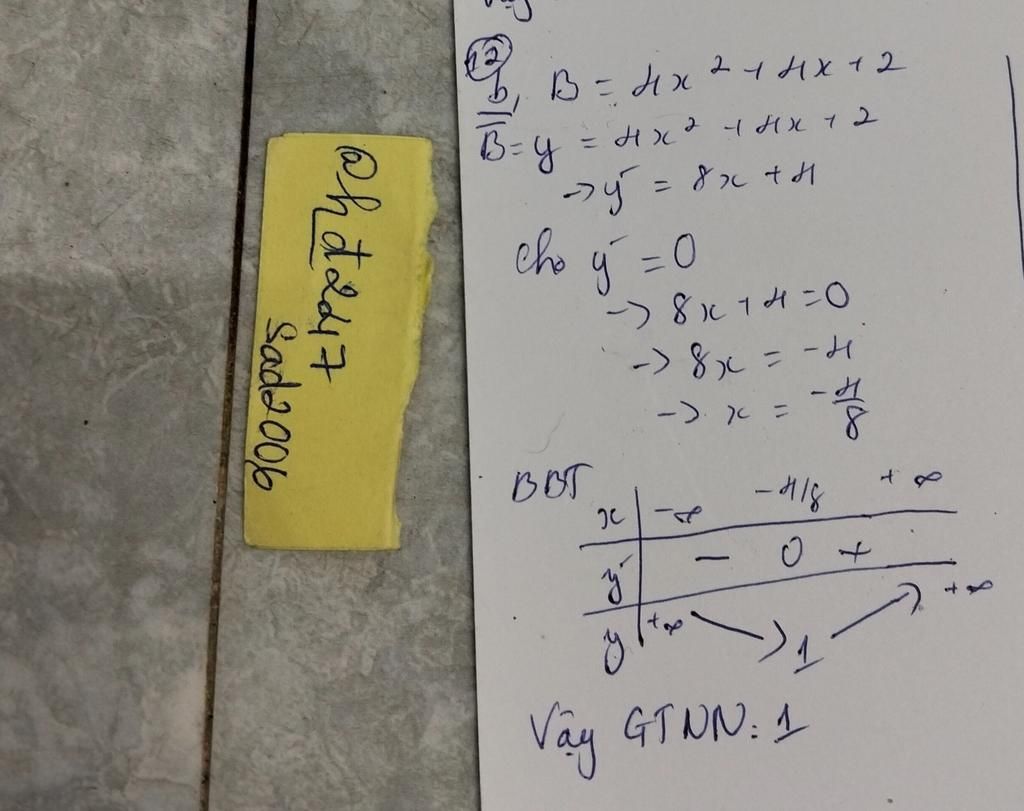 @hđ2247
Sad2006
Vậy
12
b, B = 4x² + 4x + 2
B = y = 4x² + 4x + 2
→ y' = 8x + 4
Cho y' = 0
→ 8x + 4 = 0
→ 8x = -4
→ x = -4/8
BBT
x -∞ -4/8 +∞
y' - 0 +
y +∞ 1 +∞
Vậy GTNN: 1